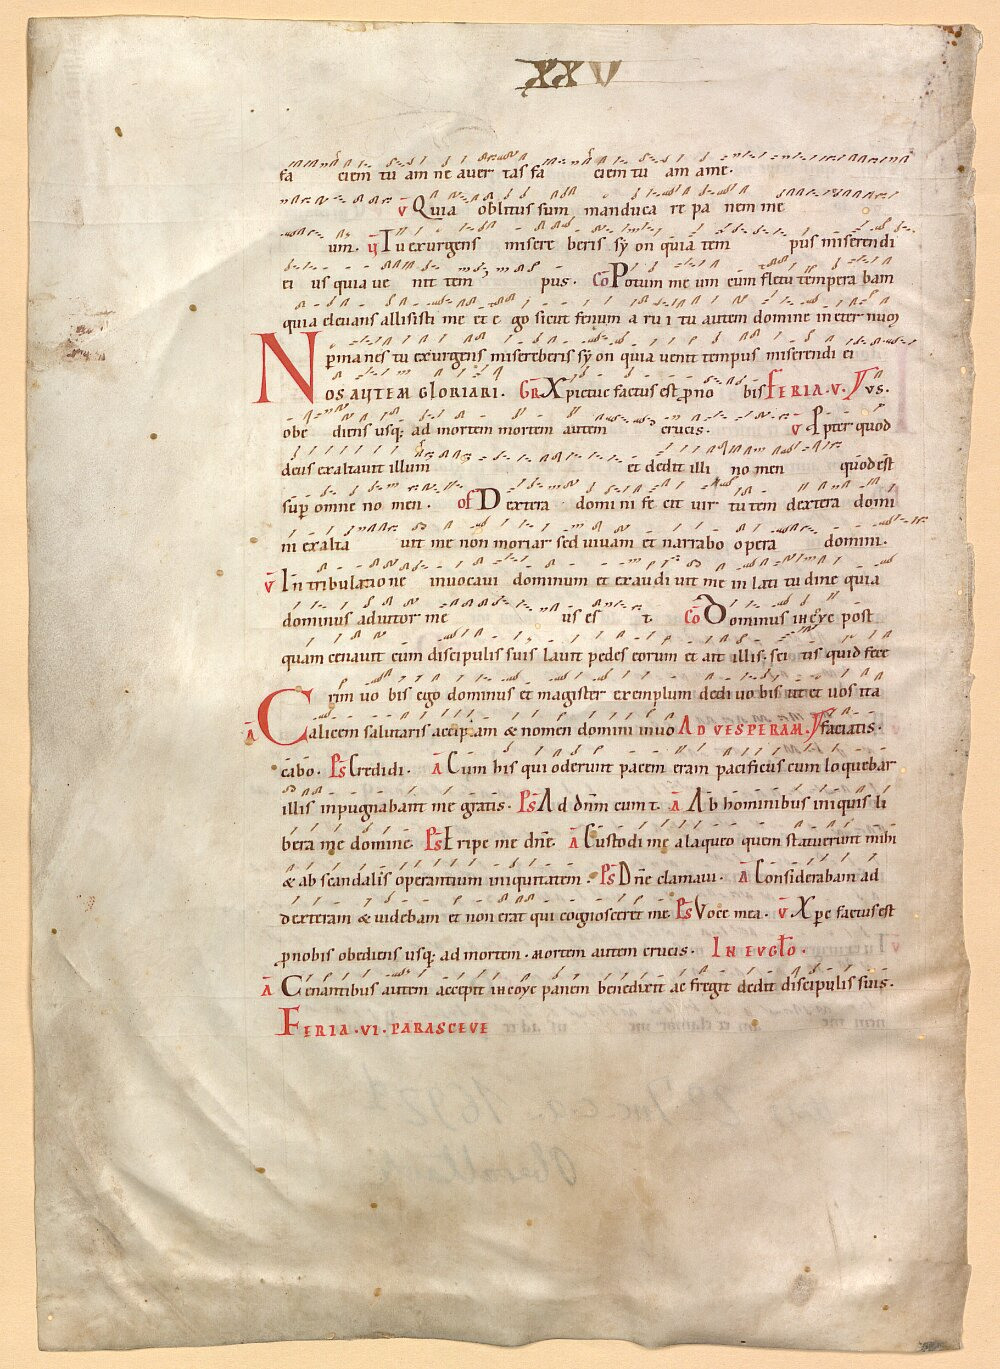 XXV
fa ciem tu am ne aver tas fa ciem tu am a me.
v̄ Quia oblitus sum manduca re pa nem me
um. ij Tu exurgens misere beris sy on quia tem pus miserendi
ei us quia ve nit tem pus. Co Potum me um cum fletu tempera bam
quia elevans allisisti me et e go sicut fenum a ru i tu autem domine in eternum
N p̄manes tu exurgens misereberis sy on quia venit tempus miserendi ei
OS AUTEM GLORIARI. GR Xpictuc factus est p̱ no bis FERIA.V. us.
obe diens usq; ad mortem mortem autem crucis. v̄ Ppter quod
deus exaltavit illum et dedit illi no men quod est
sup̄ omne no men. of Dextera domi ni fe cit vir tutem dextera domi
ni exalta vit me non moriar sed vivam et narrabo opera domini.
v̄ In tribulatione invocavi dominum et exaudi vit me in lati tu dine quia
dominus adiutor me us es t. Co Dominus ihc̄ye post
quam cenavit cum discipulis suis lavit pedes eorum et ait illis. sci tis quid fece
rim vo bis ego dominus et magister exemplum dedi vo bis ut et vos ita
Ā Calicem salutaris accipiam & nomen domini invo AD VESPERAM. faciatis.
cabo. Ps Credidi. Ā Cum his qui oderunt pacem eram pacificus cum loquebar
illis inpugnabant me gratis. Ps Ad dn̄m cum t. Ā Ab hominibus iniquis li
bera me domine. Ps Eripe me dn̄e. Ā Custodi me a laqueo quem statuerunt mihi
& ab scandalis operantium iniquitatem. Ps Dn̄e clamavi. Ā Considerabam ad
dexteram & videbam et non erat qui cognosceret me. Ps Voce mea. v̄ Xp̄c factus est
p̱ nobis obediens usq; ad mortem. mortem autem crucis. IN EVGLO.
Ā Cenantibus autem accepit ihcoyc panem benedixit ac fregit dedit discipulis suis.
FERIA.VI. PARASCEVE